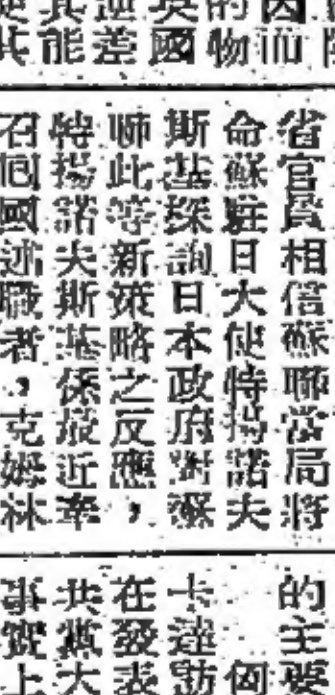 因而
的物
英國
逆差
其能
省官員相信蘇聯當局將
命蘇駐日大使特揚諾夫
斯基探詢日本政府對蘇
聯此等新策略之反應，
特揚諾夫斯基係最近奉
召回國述職者，克姆林
的主要
匈
卡達訪
在發表
共黨大
事實上